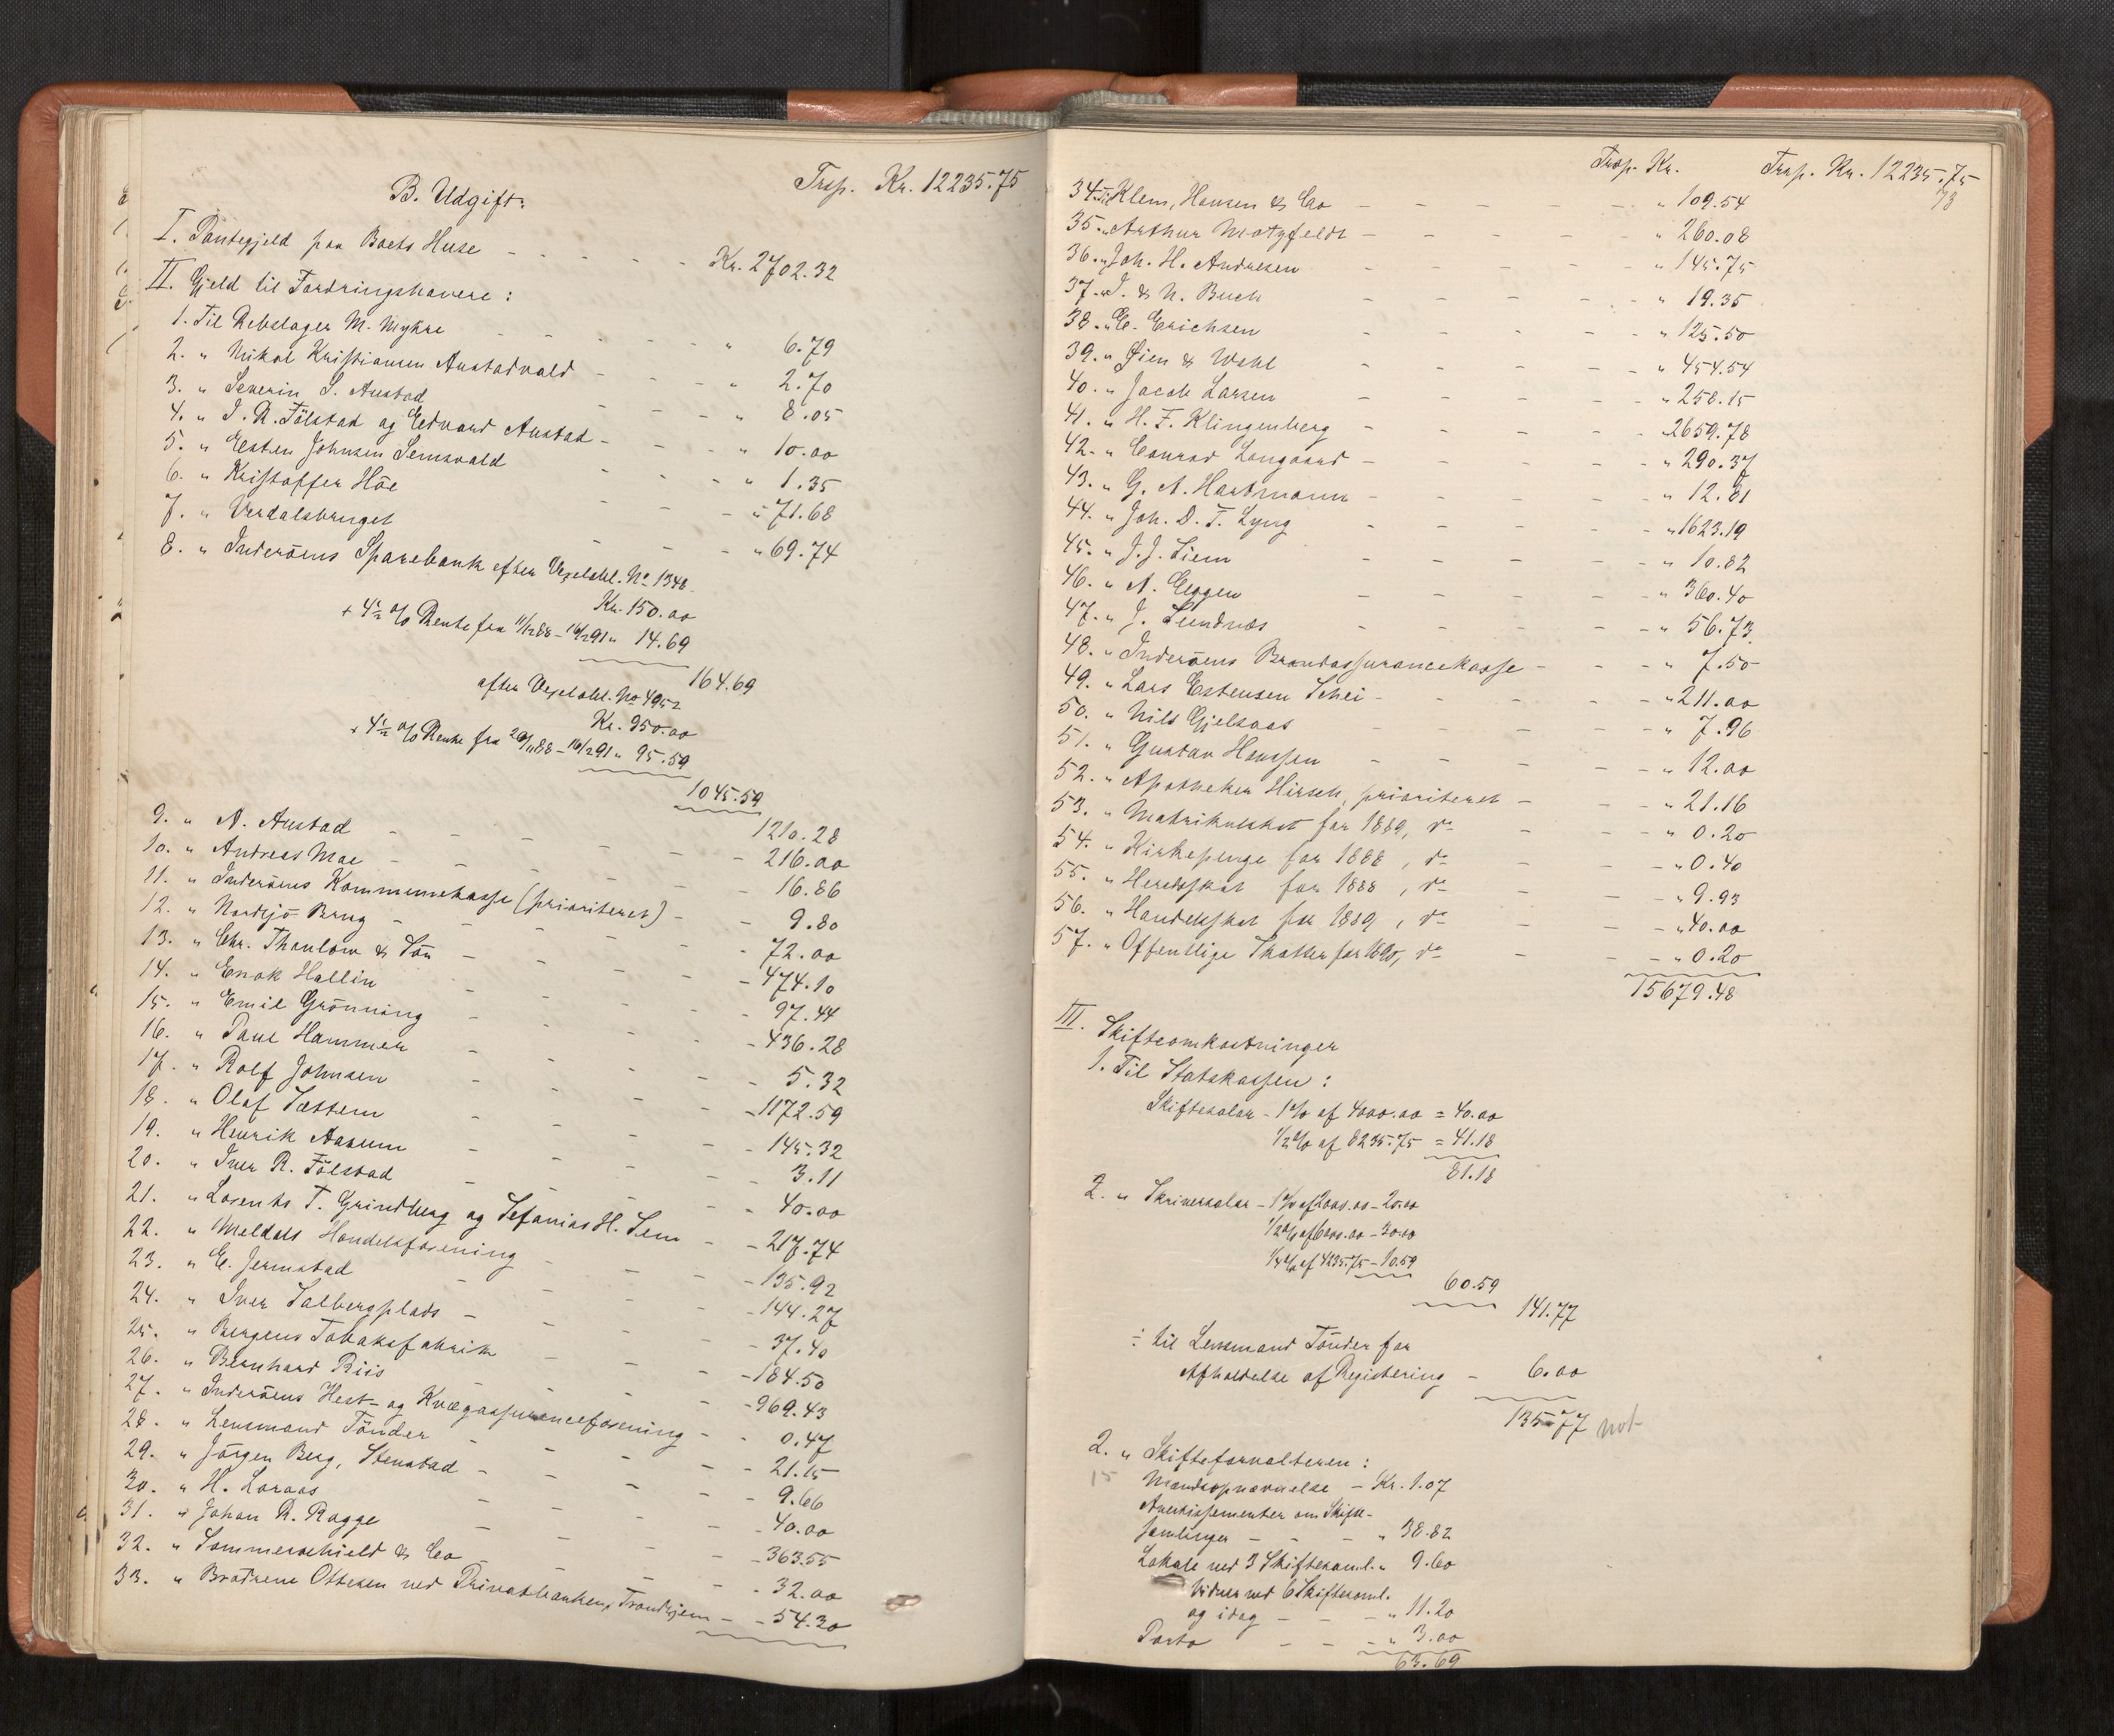 Trsp. Kr. 12235.75
B. Udgift:
I. Pantegjeld paa Boets Huse - - - - - Kr. 2702.32
II. Gjeld til Fordringshavere:
1. Til Rebslager M. Myhre - - - - - " 6.79
2. " Nikol Kristiansen Austadvald - - - - " 2.70
3. " Severin S. Austad - - - " 8.05
4. " I. R. Fölstad og Edvard Austad - - - - " 10.00
5. " Esten Johnsen Semsvald - - - " 1.35
6. " Kristoffer Höe - - - " 71.68
7. " Verdalsbruget - - - - " 69.74
8. " Inderöens Sparebank efter Vexelobl. No 1348.
Kr. 150.00
+ 4½ % Rente fra 11/12 88 - 16/2 91 " 14.69
164.69
efter Vexelobl. No 4952
Kr. 950.00
+ 4½ % Rente fra 26/11 88 - 16/2 91 " 95.59
1045.59
1210.28
9. " A. Austad - - - - - 216.00
10. " Andreas Moe - - - - - 16.86
11. " Inderöens Kommunekasse (prioriteret) - - 9.80
12. " Nordsjö Brug - - - - - 72.00
13. " Chr. Thaulow & Sön - - - - 474.10
14. " Enok Hallin - - - - 97.44
15. " Emil Grönning - - - - 436.28
16. " Paul Hammer - - - - 5.32
17. " Rolf Johnsen - - - - 1172.59
18. " Olaf Sættem - - - - 145.32
19. " Henrik Aasum - - - - 3.11
20. " Iver R. Fölstad - - - - 40.00
21. " Lorents T. Grindberg og Sefanias H. Sem - - 217.74
22. " Meldals Handelsforening - - - - 135.92
23. " E. Jermstad - - - - 144.27
24. " Iver Salbergsplads - - - - 37.40
25. " Bergens Tobaksfabrik - - - - 184.50
26. " Bernhard Riis - - - - 969.43
27. " Inderöens Hest- og Kvægassuranceforening - - 0.47
28. " Lensmand Tönder - - - - 21.15
29. " Jörgen Berg, Stenstad - - - - 9.66
30. " H. Loraas - - - - 40.00
31. " Johan R. Rogge - - - - 363.55
32. " Sommerschield & Co - - - - 32.00
33. " Brødrene Ottesen ved Privatbanken, Trondhjem - - 54.30
Trsp. Kr. Trsp. Kr. 12235.75
73
34. Til Klem, Hansen & Co - - - - - " 109.54
35. " Arthur Motzfeldt - - - - - " 260.08
36. " Joh. H. Andresen - - - - - " 145.75
37. " I. & N. Buch - - - - - " 19.35
38. " E. Erichsen - - - - - " 125.50
39. " Øien & Wahl - - - - - " 454.54
40. " Jacob Larsen - - - - - " 258.15
41. " H. F. Klingenberg - - - - - " 2659.78
42. " Conrad Langaard - - - - - " 290.37
43. " G. A. Hartmann - - - - - " 12.81
44. " Joh. D. T. Lyng - - - - - " 1623.19
45. " J. J. Siem - - - - - " 10.82
46. " A. Eggen - - - - - " 360.40
47. " J. Sundnæs - - - - - " 56.73
48. " Inderöens Brandassurancekasse - - - " 7.50
49. " Lars Estensen Schei - - - - - " 211.00
50. " Nils Gjelsaas - - - - - " 7.96
51. " Gustav Hougsen - - - - - " 12.00
52. " Apotheker Hirsch, prioriteret - - - " 21.16
53. " Matrikulskat for 1889, do - - - " 0.20
54. " Kirkepenge for 1888, do - - - " 0.40
55. " Heredsskat for 1888, do - - - " 9.93
56. " Handelsskat for 1889, do - - - " 40.00
57. " Offentlige Skatter for 1890, do - - - " 0.20
15679.48
III. Skifteomkostninger
1. Til Statskassen:
Skiftesalær - 1% af 4000.00 = 40.00
1/2 % af 8235.75 = 41.18
81.18
2. " Skriversalær - 1% af 2000.00 - 20.00
1/2 % af 6000.00 - 30.00
1/4 % af 4235.75 - 10.59
60.59
141.77
÷ til Lensmand Tönder for
Afholdelse af Registering - 6.00
135.77 not
2. " Skifteforvalteren:
15
Mandsopnævnelse - Kr. 1.07
Avertissementer om Skifte-
samlinger - - - " 38.82
Lokale ved 3 Skiftesaml. " 9.60
Vidner ved 6 Skiftesaml.
og idag - - - " 11.20
Porto - - - " 3.00
63.69